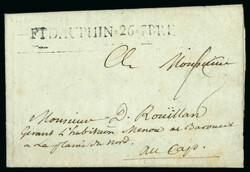 FT DAUPHIN·26·7BRE
A Monsieur
Monsieur D. Rouillan
Gerant L'habitation Menou et Baronnez
a La plaine du Nord.
au Cap.